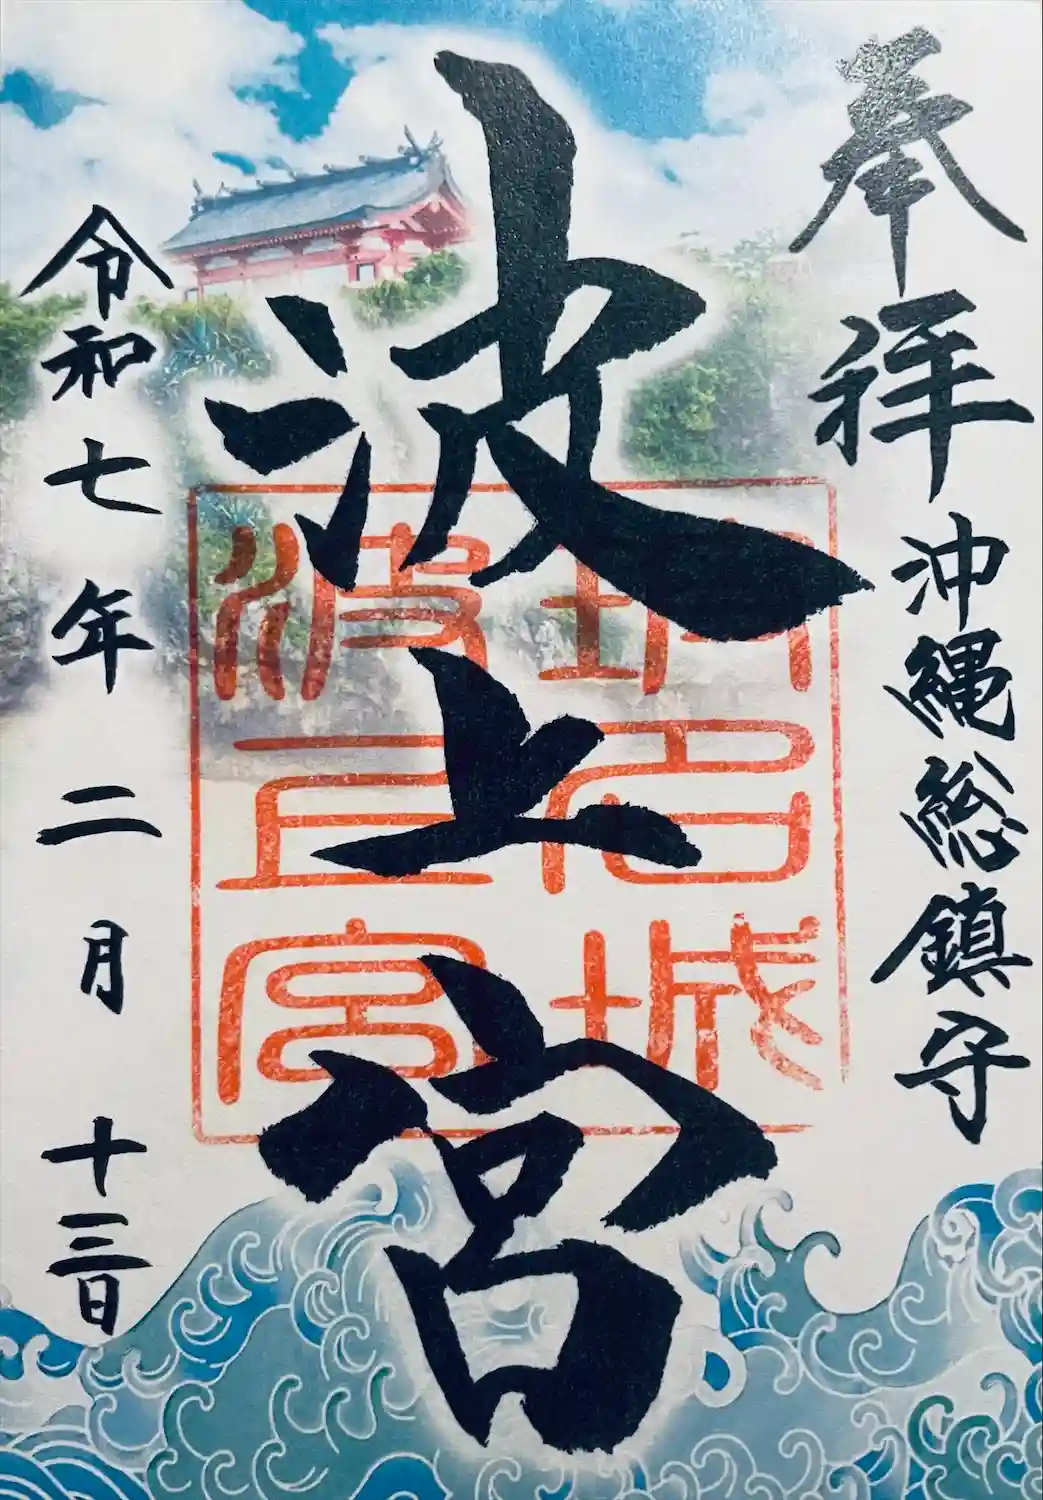 奉拝
沖縄総鎮守
波上宮
琉球城
波上宮
令和七年二月十三日